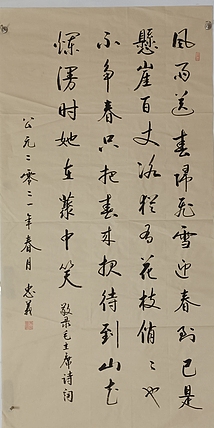 風雨送春歸飛雪迎春到已是
懸崖百丈冰猶有花枝俏〻也
不争春只把春来报待到山花
爛漫时她在叢中笑 敬录毛主席诗词
公元二零二一年春月 忠義